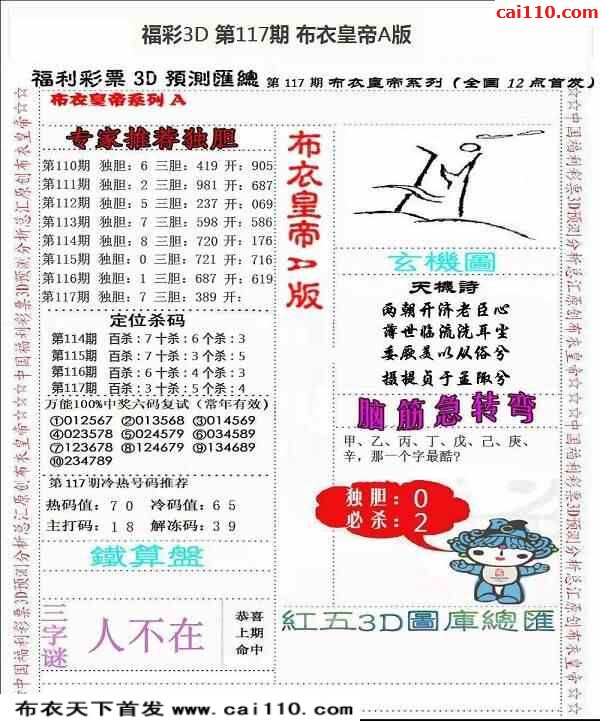 cai110.com
福彩3D 第117期 布衣皇帝A版
福利彩票 3D 預測匯總 第 117 期 布衣皇帝系列 (全国 12 点首发)
布衣皇帝系列 A
专家推荐独胆
第110期 独胆: 6 三胆: 419 开: 905
第111期 独胆: 2 三胆: 981 开: 687
第112期 独胆: 5 三胆: 237 开: 069
第113期 独胆: 7 三胆: 598 开: 586
第114期 独胆: 8 三胆: 720 开: 176
第115期 独胆: 0 三胆: 721 开: 716
第116期 独胆: 1 三胆: 687 开: 619
第117期 独胆: 7 三胆: 389 开:
定位杀码
第114期 百杀: 7 十杀: 6 个杀: 3
第115期 百杀: 7 十杀: 4 个杀: 3
第116期 百杀: 7 十杀: 4 个杀: 2
第117期 百杀: 3 十杀: 5 个杀: 4
万能100%中奖六码复试 (常年有效)
①012567 ②013568 ③014569
④023578 ⑤024579 ⑥034589
⑦123678 ⑧124679 ⑨134689
⑩234789
第117期冷热号码推荐
热码值: 7 0 冷码值: 6 5
主打码: 1 8 解冻码: 3 9
鐵算盤
三字谜
人不在
恭喜
上期
命中
布衣皇帝A版
玄機圖
天機詩
两朝开济老臣心
薄世临流洗耳尘
委厥美以从俗兮
摄提贞于孟陬兮
脑筋急转弯
甲、乙、丙、丁、戊、己、庚、
辛，那一个字最酷?
独胆: 0
必杀: 2
紅五3D圖庫總匯
☆☆中国福利彩票3D预测分析总汇原创布衣皇帝☆☆
☆☆中国福利彩票3D预测分析总汇原创布衣皇帝☆☆
布衣天下首发 www.cai110.com